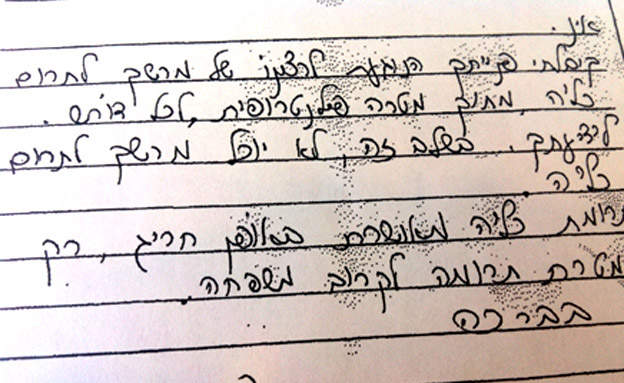 א.נ.
קיבלתי פנייתך הנוגעת לרצונו של מרשך לתרום
כליה, מתוך מטרה פילנטרופית, לכל דורש.
לידיעתך. בשלב זה, לא יוכל מרשך לתרום
כליה.
תרומת כליה מאושרת באופן חריג, רק
מטרת תרומה לקרוב משפחה.
בברכה